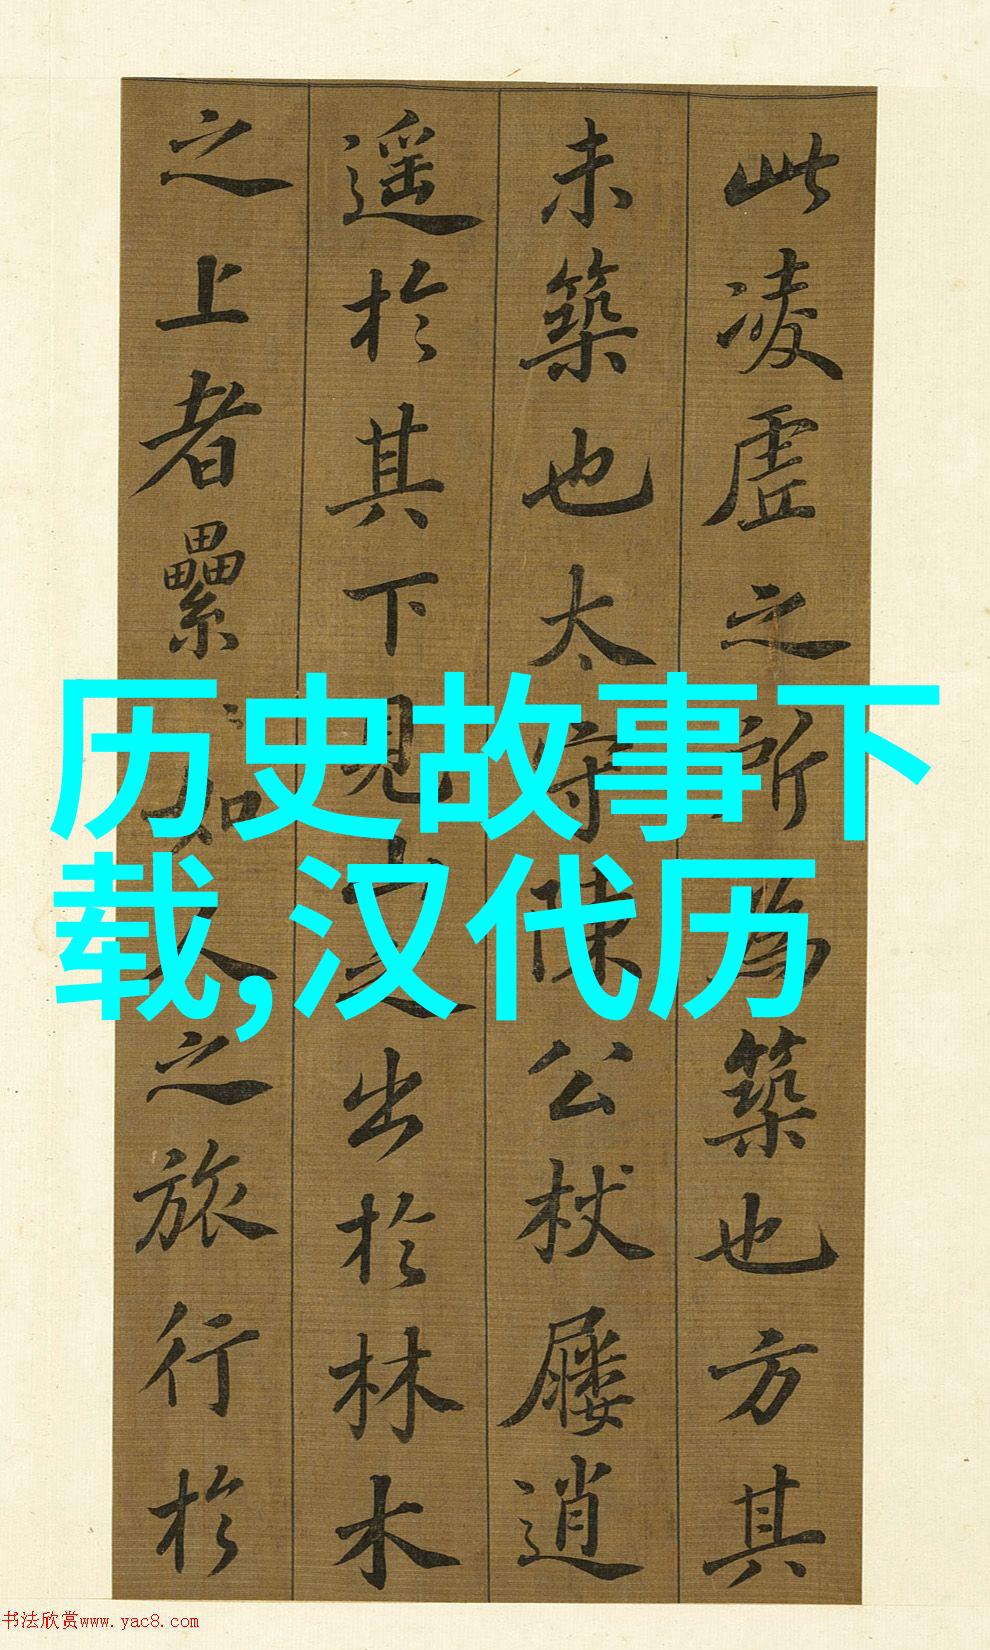 此凌虛之所為築也方其
未築也太守陳公杖屨逍
遥於其下見山之出於林木
之上者纍〻如人之旅行於
历史故事下
载,汉代历
书法欣赏www.yac8.com